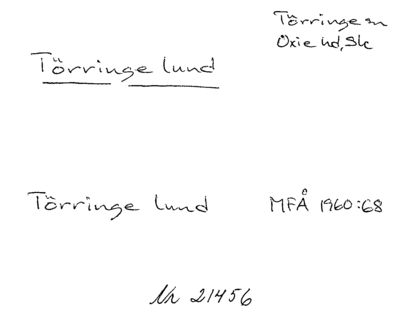 Törringe sn
Oxie hd, Sk
Törringe lund
Törringe lund MFÅ 1960:68
Nr 21456